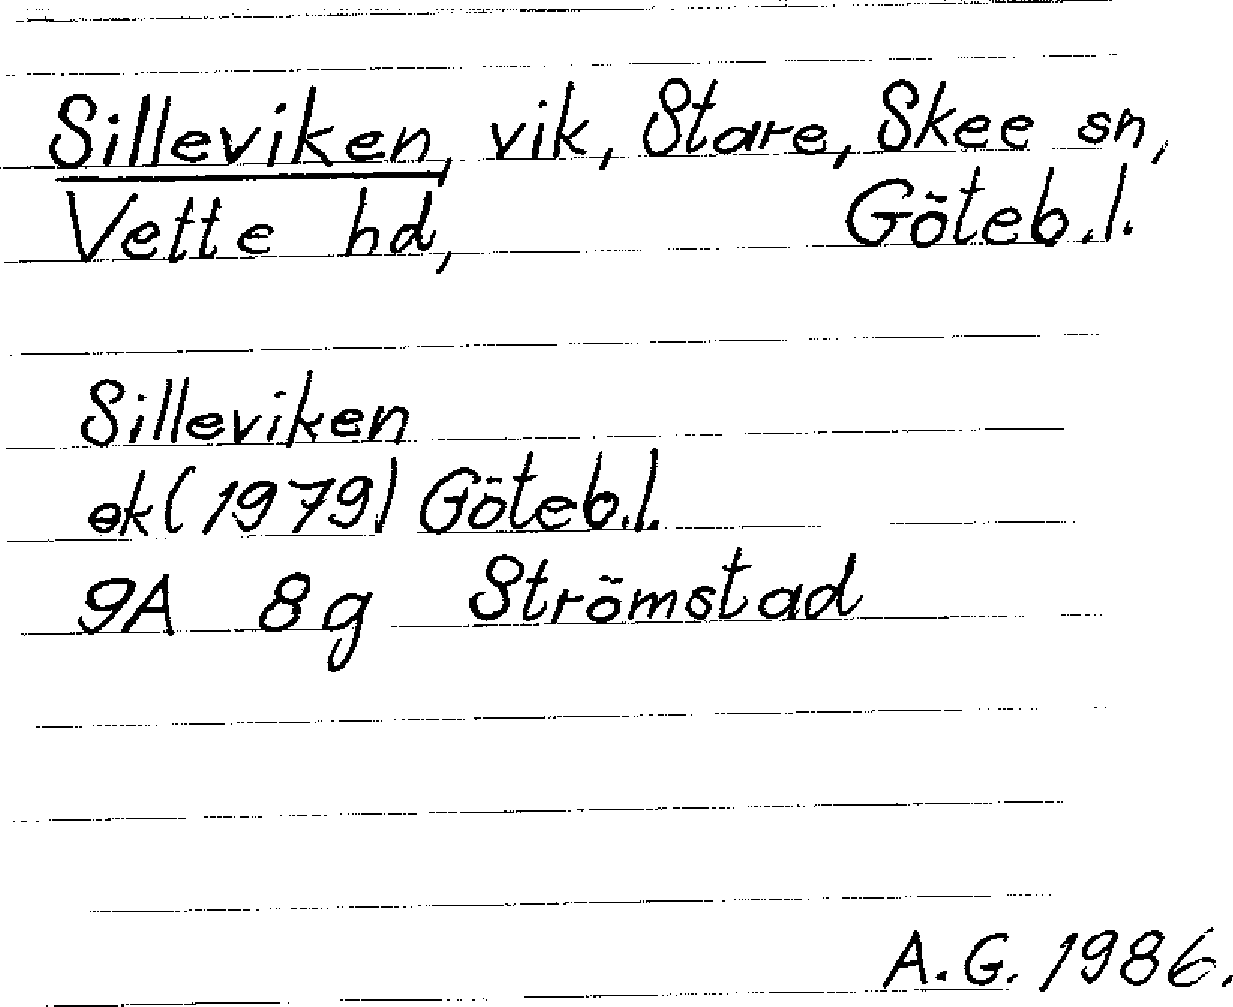 Silleviken, vik, Stare, Skee sn,
Vette hd, Göteb.l.
Silleviken
ek(1979) Göteb.l.
9A 8g Strömstad
A.G. 1986.